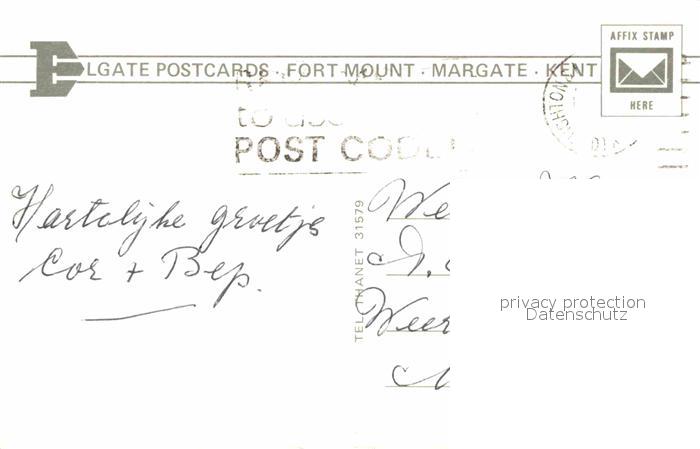 ELGATE POSTCARDS · FORT MOUNT · MARGATE · KENT
AFFIX STAMP
HERE
to use
POST CODE
Hartelijke groetjes
Cor + Bep.
TEL. THANET 31579
We
Weer
privacy protection
Datenschutz